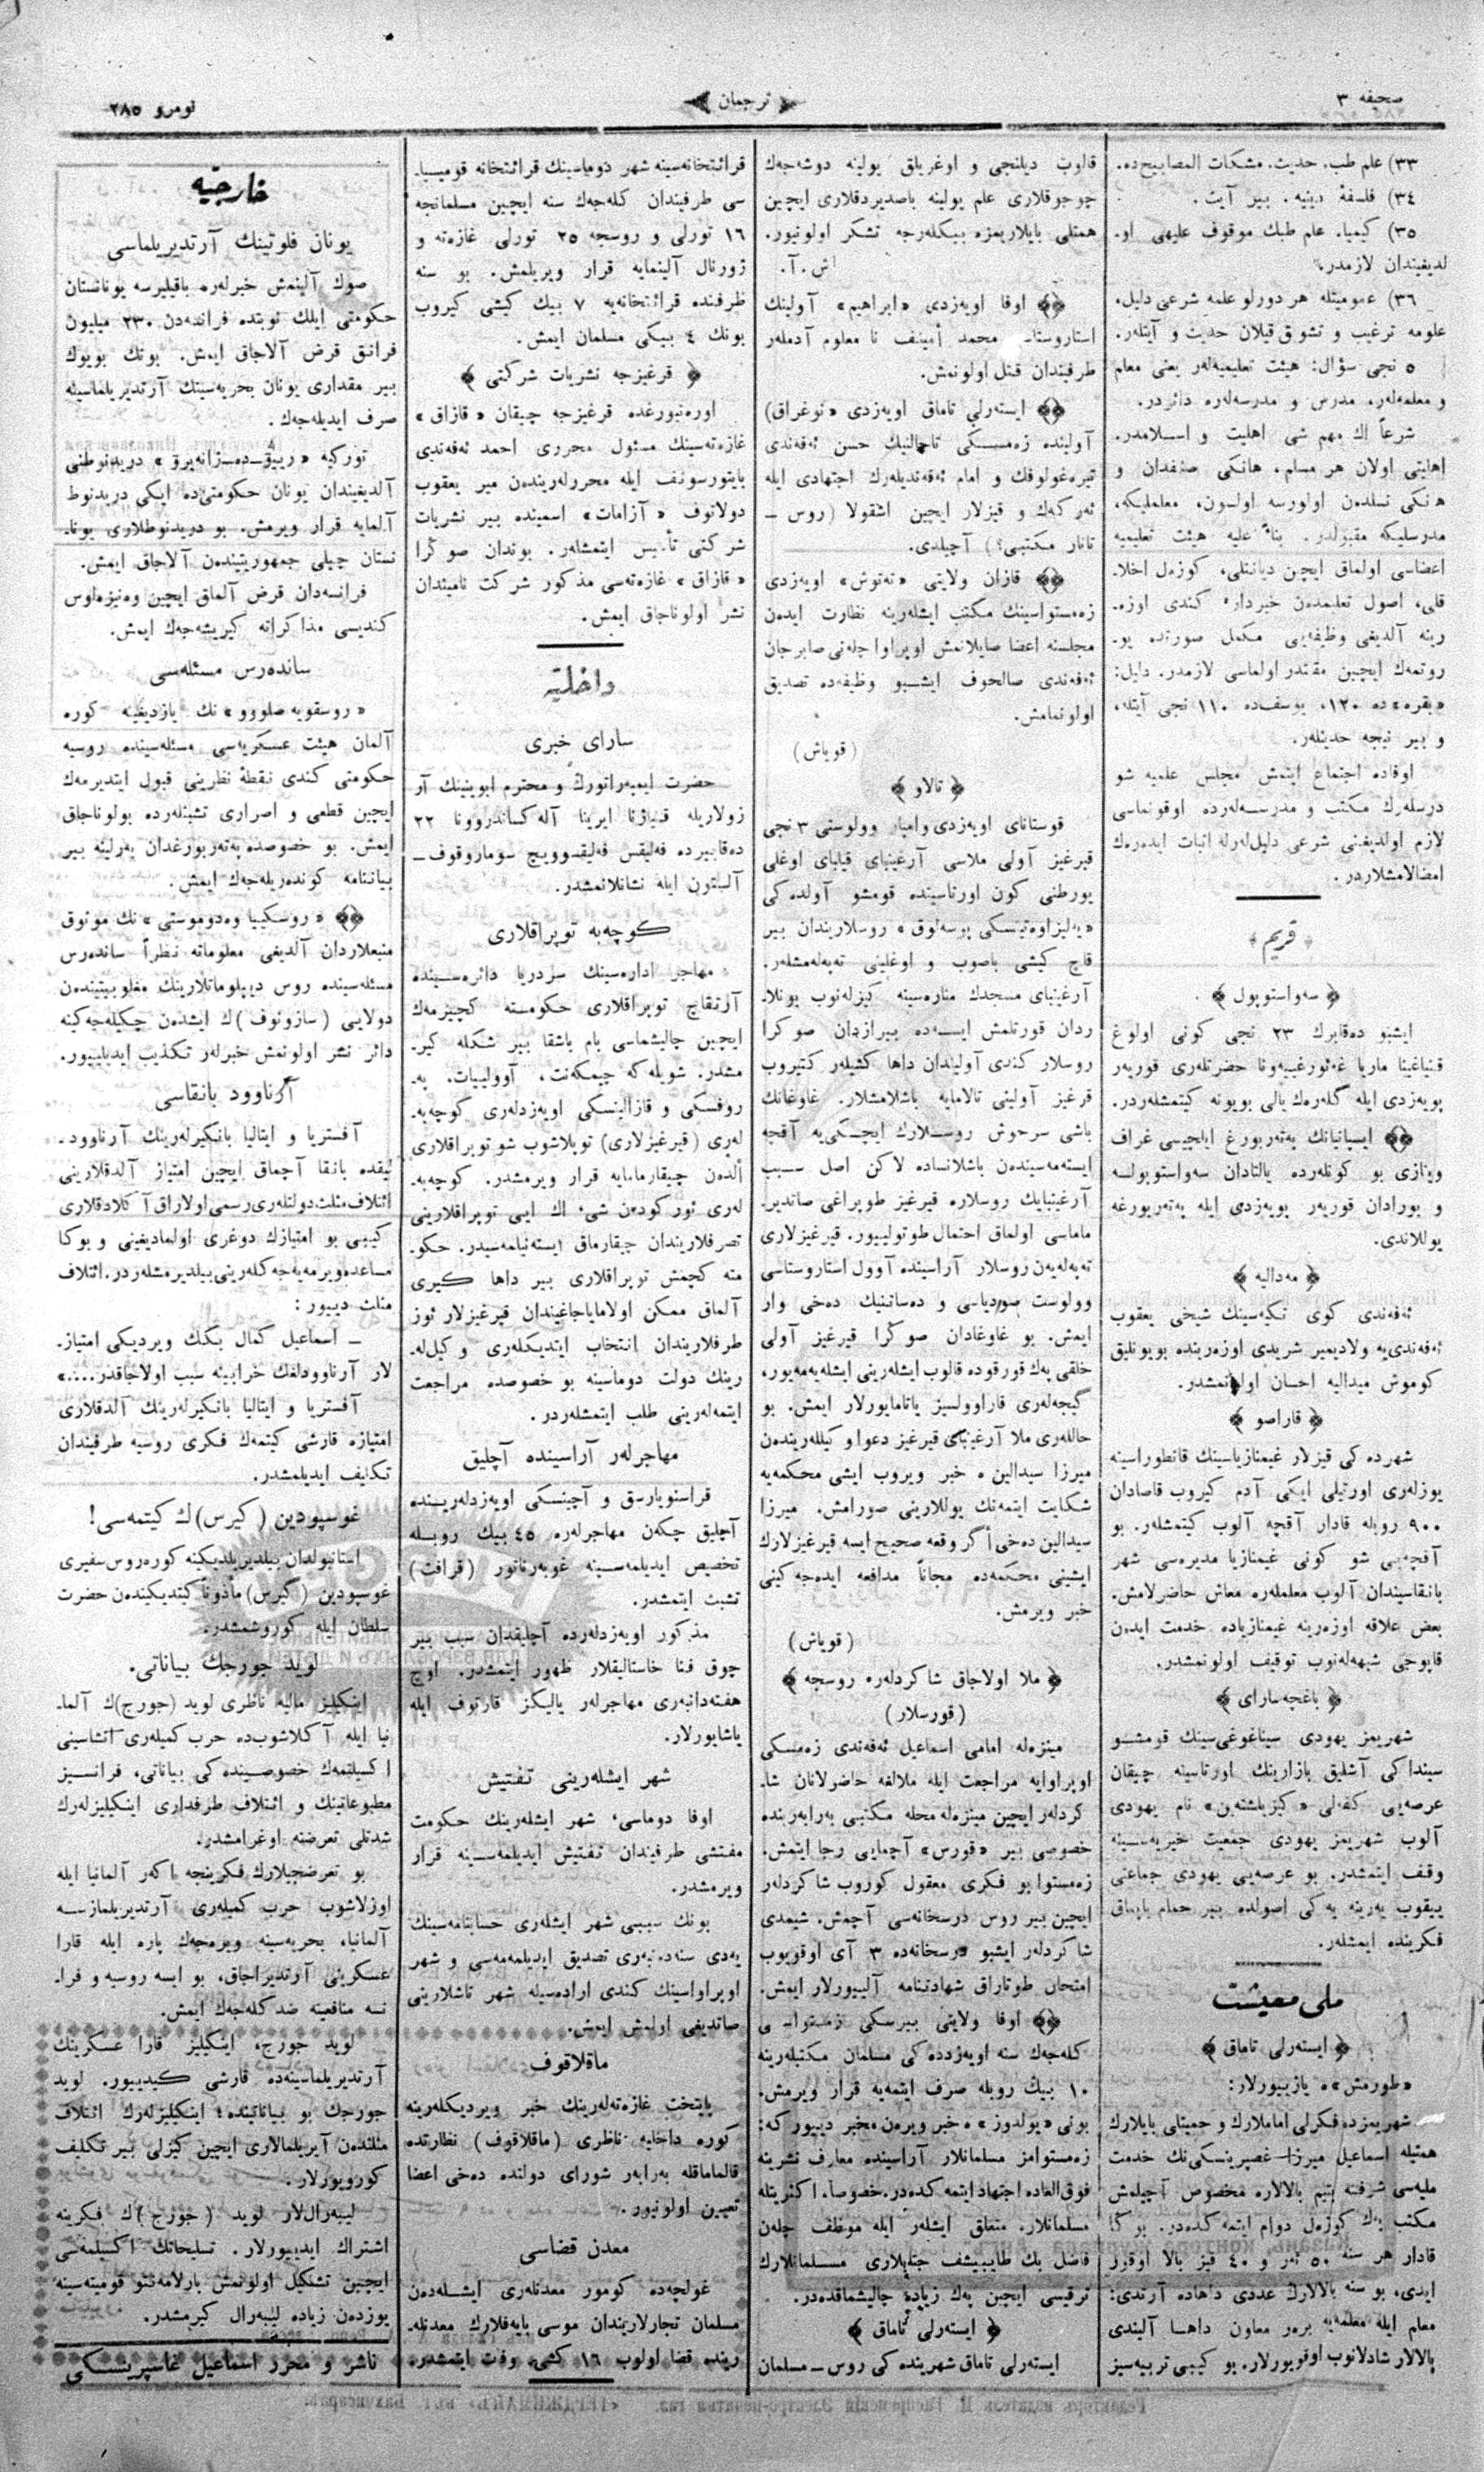 صحیفه ٣
ترجمان
نومرو ٢٨٥
٣٣) علم طب. حدیث. مشکات المصابیح‌ده.
٣٤) فلسفهٔ دینیه. بیر آیت.
٣٥) کیمیا. علم طبك موقوف علیهی او-
لدیغیندان لازمدر.
٣٦) عمومیتله هر دورلو علمه شرعی دلیل،
علومه ترغیب و تشوق قیلان حدیث و آیتلر.
٥ نجی سؤال: هیئت تعلیمیه‌لر یعنی معلم
و معلمه‌لره، مدرس و مدرسه‌لره دائردر.
شرعاً اك مهم شی اهلیت و اسلامدر.
اهلیتی اولان هر مسلم، هانکی صنفدان و
هانکی نسلدن اولورسه اولسون، معلملیکه،
مدرسلیکه مقبولدر. بناءً علیه هیئت تعلیمیه
اعضاسی اولماق ایچن دیانتلی، کوزل اخلا-
قلی، اصول تعلیمدن خبردار، کندی اوزه-
رینه آلدیغی وظیفه‌یی مکمل صورتده یو-
روتمه‌ك ایچین مقتدر اولماسی لازمدر. دلیل:
«بقره»ده ١٢٠، یوسف‌ده ١١٠ نجی آیتلر،
و بیر نیچه حدیثلر.
اوفاده اجتماع ایتمش مجلس علمیه شو
درسلرك مکتب و مدرسه‌لرده اوقونماسی
لازم اولدیغنی شرعی دلیل‌لرله اثبات ایده‌رك
امضالامشلاردر.
قریم
سه‌واستوپول
ایشبو ده‌قابرك ٢٣ نجی کونی اولوغ
قنیاغینا ماریا غه‌ئورغییه‌ونا حضرتلری قوریه‌ر
پویه‌زدی ایله گله‌رك یالی بویونه کیتمشلردر.
ایسپانیانك په‌ته‌ربورغ ایلچیسی غراف
ویناز‌ی بو کونلرده یالتادان سه‌واستوپوله
و بورادان قوریه‌ر پویه‌زدی ایله په‌ته‌ربورغه
یوللاندی.
مه‌دالیه
ئه‌فه‌ندی کوی تکیه‌سینك شیخی یعقوب
ئه‌فه‌ندی‌یه ولادیمیر شریدی اوزه‌رینده بویونلیق
کوموش میدالیه احسان اولونمشدر.
قاراصو
شهرده کی قیزلار غیمنازیاسینك قانطوراسینه
یوزلری اورتیلی ایکی آدم کیروب قاصادان
٩٠٠ روبله قادار آقچه آلوب کیتمشلر. بو
آقچه‌یی شو کونی غیمنازیا مدیره‌سی شهر
بانقاسیندان آلوب معلملره معاش حاضرلامش.
بعض علاقه اوزه‌رینه غیمنازیاده خدمت ایدن
قاپوجی شبهه‌له‌نوب توقیف اولونمشدر.
باغچه‌سارای
شهریمز یهودی سیناغوغی‌سینك قومشو-
سینداکی آشلیق بازارینك اورتاسینه چیقان
عرصه‌یی کفه‌لی نام یهودی
آلوب شهریمز یهودی جمعیت خیریه‌سینه
وقف ایتمشدر. بو عرصه‌یی یهودی جماعتی
ییقوب یه‌رینه یه‌کی اصولده بیر حمام یاپماق
فکرینده ایمشلر.
ملی معیشت
ایسته‌رلی تاماق
«طورمش»ه یازییورلار:
شهریمزده فکرلی اماملارك و حمیتلی بایلارك
همتیله اسماعیل میرزا غصپرینسکی‌نك خدمت
ملیه‌سی شرفنه یتیم بالالاره مخصوص آچیلمش
مکتب یه‌ك کوزه‌ل دوام ایتمه‌کده‌در. بوکا
قادار هر سنه ٥٠ ئه‌ر و ٤٠ قیز بالا اوقور
ایدی، بو سنه بالالارك عددی داهاده آرتدی؛
معلم ایله معلمه‌یه بره‌ر معاون داهـا آلیندی
بالالار شادلانوب اوقویورلار. بو کیبی تربیه‌سیز
قالوب دیلنجی و اوغریلق یولینه دوشه‌جه‌ك
چوجوقلاری علم یولینه باصدیردقلاری ایچین
همتلی بایلاریمزه بیکله‌رجه تشکر اولونیور.
ش. آ.
اوفا اویه‌زدی «ابراهیم» آولینك
استاروستا- محمد أمینف نا معلوم آدملر
طرفیندان قتل اولونمش.
ایسته‌رلی تاماق اویه‌زدی «نوغراق)
آولینده زه‌مسکی ناچالنیك حسن ئه‌فه‌ندی
تیره‌غولوفك و امام ئه‌فه‌ندیله‌رك اجتهادی ایله
ئه‌ر که‌ك و قیزلار ایچین اشقولا (روس –
تاتار مکتبی؟) آچیلدی.
قازان ولایتی «ته‌توش» اویه‌زدی
زه‌مستواسینك مکتب ایشلرینه نظارت ایدن
مجلسنه اعضا صایلانمش اوپراوا چله‌نی صابرجان
ئه‌فه‌ندی صالحوف ایشبو وظیفه‌ده تصدیق
اولونمامش.
(قویاش)
تالاو
قوستانای اویه‌زدی وامبار وولوسنی ٣ نجی
قیرغیز آولی ملاسی آرغینبای قیلبای اوغلی
یورطنی کون اورتاسینده قومشو آولده کی
«یه‌لیزاوه‌تینسکی پوسه‌لوق» روسلاریندان بیر
قاچ کیشی باصوب و اوغلینی ته‌په‌له‌مشلر.
آرغینبای مسجدك مناره‌سینه کیزله‌نوب بونلا-
ردان قورتلمش ایسه‌ده بیرازدان صوکرا
روسلار کندی آولیندان داها کشیلر کتیروب
قرغیز آولینی تالامایه باشلامشلار. غاوغانك
باشی سرخوش روسلارك ایچکی‌یه آقچه
ایسته‌مه‌سیندن باشلانساده لاکن اصل سبب
آرغینبایك روسلاره قیرغیز طوپراغی صاتدیر-
ماماسی اولماق احتمال طوتولییور. قیرغیزلاری
ته‌په‌له‌یه‌ن روسلار آراسینده آوول استاروستاسی
وولوست صودیاسی و ده‌ساتنیك ده‌خی وار
ایمش. بو غاوغادان صوکرا قیرغیز آولی
خلقی یه‌ك قورقوده قالوب ایشلرینی ایشله‌یه‌مه‌یور،
گیجه‌لری قاراوولسیز یاتامایورلار ایمش. بو
حاللری ملا آرغینبای قیرغیز دعوا وکیللریندن
میرزا سیدالین ه خبر ویروب ایشی محکمه‌یه
شکایت ایتمه‌نك یوللارینی صورامش. میرزا
سیدالین ده‌خی أگر وقعه صحیح ایسه قیرغیزلارك
ایشینی محکمه‌ده مجاناً مدافعه ایده‌جه‌کینی
خبر ویرمش.
(قویاش)
ملا اولاجاق شاکردلره روسچه
(قورسلار)
مینزه‌له امامی اسماعیل ئه‌فه‌ندی زه‌مسکی
اوپراوایه مراجعت ایله ملالغه حاضرلانان شا-
کردلر ایچین مینزه‌له محله مکتبی به‌رابه‌رینده
خصوصی بیر «قورس» آچمایی رجا ایتمش.
زه‌مستوا بو فکری معقول کوروب شاکردلر
ایچین بیر روس درسخانه‌سی آچمش. شیمدی
شاکردلر ایشبو درسخانه‌ده ٣ آی اوقویوب
امتحان طوتاراق شهادتنامه آلییورلار ایمش.
اوفا ولایتی بیرسکی زه‌مستواسی
کله‌جه‌ك سنه اویه‌زدده کی مسلمان مکتبلرینه
١٠ بیك روبله صرف ایتمه‌یه قرار ویرمش.
بونی «یولدوز»ه خبر ویرن مخبر دییور که:
زه‌مستوامز مسلمانلار آراسینده معارف نشرینه
فوق‌العاده اجتهاد ایتمه‌کده‌در. خصوصا، اکثریتله
مسلمانلار، متعلق ایشلر ایله موظف چله‌ن
فاضل بك طایبیشف جنابلاری مسلمانلارك
ترقیسی ایچین یه‌ك زیاده چالیشماقده‌در.
ایسته‌رلی تاماق
ایسته‌رلی تاماق شهرینده کی روس – مسلمان
قرائتخانه‌سینه شهر دوماسینك قرائتخانه قومیسیا-
سی طرفیندان کله‌جه‌ك سنه ایچین مسلمانجه
١٦ تورلی و روسجه ٢٥ تورلی غازه‌ته و
ژورنال آلینمایه قرار ویریلمش. بو سنه
ظرفنده قرائتخانه‌یه ٧ بیك کیشی کیروب
بونك ٤ بیکی مسلمان ایمش.
قرغیزجه نشریات شرکتی
اوره‌نبورغده قرغیزجه چیقان «قازاق»
غازه‌ته‌سینك مسئول محرری احمد ئه‌فه‌ندی
بایتورسونف ایله محررلریندن میر یعقوب
دولاتوف «آزامات» اسمینده بیر نشریات
شرکتی تأسیس ایتمشلر. بوندان صوکرا
«قازاق» غازه‌ته‌سی مذکور شرکت نامیندان
نشر اولوناجاق ایمش.
داخلیه
سارای خبری
حضرت ایمپه‌راتورك و محترم ابوینینك آر-
زولاریله قنیاژنا ایرینا آله‌کساندروونا ٢٢
ده‌قابیرده فه‌لیقس فه‌لیقسوویچ سوماروقوف –
آلستون ایله نشانلانمشدر.
کوچه‌به توپراقلاری
مهاجر اداره‌سینك سردریا دائره‌سینده
آرتقاچ توپراقلاری حکومته کچیرمه‌ك
ایچین چالیشماسی بام باشقا بیر شکله کیر-
مشدر. شویله که چیمکه‌نت، آوولییات، په-
روفسکی و قازالینسکی اویه‌زدلری کوچه‌به-
لری (قیرغیزلاری) توپلاشوب شو توپراقلاری
ألدن چیقارمامایه قرار ویرمشدر. کوچه‌به-
لری ئورکودن شیء اك ایی توپراقلارینی
تصرفلاریندان چیقارماق ایسته‌نیله‌مه‌سیدر. حکو-
مته کچمش توپراقلاری بیر داها کیری
آلماق ممکن اولامایاجاغیندان قیرغیزلار ئوز
طرفلاریندان انتخاب ایتدیکلری وکیل‌له-
رینك دولت دوماسینه بو خصوصده مراجعت
ایتمه‌لرینی طلب ایتمشلردر.
مهاجرلر آراسینده آچلیق
قراسنویارسق و آچینسکی اویه‌زدلرینده
آچلیق چکن مهاجرلره ٤٥ بیك روبله
تخصیص ایدیلمه‌سینه غوبه‌رناتور (قرافت)
تشبث ایتمشدر.
مذکور اویه‌زدلرده آچلیقدان سبب بیر
چوق فنا خاستالیقلار ظهور ایتمشدر. اوچ
هفته‌دانبه‌ری مهاجرلر یالیکز قارتوف ایله
یاشایورلار.
شهر ایشلرینی تفتیش
اوفا دوماسی، شهر ایشلرینك حکومت
مفتشی طرفیندان تفتیش ایدیلمه‌سینه قرار
ویرمشدر.
بونك سببی شهر ایشلری حسابنامه‌سینك
یه‌دی سنه‌دنبه‌ری تصدیق ایدیلمه‌مه‌سی و شهر
اوپراواسینك کندی اراده‌سیله شهر تاشلارینی
صاتدیغی اولمش ایمش.
ماقلاقوف
پایتخت غازه‌ته‌لرینك خبر ویردیکلرینه
کوره داخلیه ناظری (ماقلاقوف) نظارتده
قالماماقله به‌رابه‌ر شورای دولتده ده‌خی اعضا
تعیین اولونیور.
معدن قضاسی
غولجه‌ده کومور معدنلری ایشله‌دن
مسلمان تجارلاریندان موسی بایه‌فلارك معدنله-
رینده قضا اولوب ١٦ کشی وفت ایتمشدر.
خارجیه
یونان فلوتینك آرتدیریلماسی
صوك آلینمش خبرلره باقیلیرسه یونانستان
حکومتی ایلك نوبتده فرانسه‌دن ٢٣٠ میلیون
فرانق قرض آلاجاق ایمش. بونك بویوك
بیر مقداری یونان بحریه‌سینك آرتدیریلماسینه
صرف ایدیله‌جه‌ك.
تورکیه «ریئو-ده-ژانه‌یرو» دریدنوطنی
آلدیغیندان یونان حکومتی‌ده ایکی دریدنوط
آلمایه قرار ویرمش. بو دریدنوطلاری یونا-
نستان چیلی جمهوریتیندن آلاجاق ایمش.
فرانسه‌دان قرض آلماق ایچین وه‌نیزه‌لوس
کندیسی مذاکراته کیریشه‌جه‌ك ایمش.
سانده‌رس مسئله‌سی
«روسقویه صلووو» نك یازدیغینه کوره
آلمان هیئت عسکریه‌سی مسئله‌سینده روسیه
حکومتی کندی نقطهٔ نظرینی قبول ایتدیرمه‌ك
ایچین قطعی و اصراری تشبثلرده بولوناجاق
ایمش. بو خصوصده په‌ته‌ربورغدان به‌رلینه بیر
بیاننامه کونده‌ریله‌جه‌ك ایمش.
«روسکییا وه‌دوموستی» نك موثوق
منبعلاردان آلدیغی معلوماته نظراً سانده‌رس
مسئله‌سینده روس دیپلوماتلارینك مغلوبیتیندن
دولایی (سازونوف)ك ایشدن چکیله‌جه‌کینه
دائر نشر اولونمش خبرلر تکذیب ایدیلییور.
آرناوود بانقاسی
آفستریا و ایتالیا بانکیرلرینك آرناوود-
لیقده بانقا آچماق ایچین امتیاز آلدقلارینی
ائتلاف مثلث دولتلری رسمی اولاراق آکلادقلاری
کیبی بو امتیازك دوغری اولمادیغینی و بوکا
مساعده ویرمه‌یه‌جه‌کلرینی بیلدیرمشلردر. ائتلاف
مثلث دییور:
– اسماعیل کمال بکك ویردیکی امتیاز-
لار آرناوودلغك خرابینه سبب اولاجاقدر....»
آفستریا و ایتالیا بانکیرلرینك آلدقلاری
امتیازه قارشی کیتمه‌ك فکری روسیه طرفیندان
تکلیف ایدیلمشدر.
غوسپودین (کیرس)ك کیتمه‌سی!
استانبولدان بیلدیریلدیکینه کوره روس سفیری
غوسپودین (گیرس) مأذوناً کیتدیکیندن حضرت
سلطان ایله کوروشمشدر.
لوید جورجك بیاناتی.
اینکیلیز مالیه ناظری لوید (جورج)ك آلما-
نیا ایله آکلاشوب‌ده حرب کمیلری انشاسینی
اکسیلتمه‌ك خصوصینده کی بیاناتی، فرانسیز
مطبوعاتینك و ائتلاف طرفداری اینکیلیزله‌رك
شدتلی تعرضنه اوغرامشدر.
بو تعرضچیلارك فکرینجه اکر آلمانیا ایله
اوزلاشوب حرب کمیلری آرتدیریلمازسه
آلمانیا، بحریه‌سینه ویره‌جه‌ك پاره ایله قارا
عسکرینی آرتدیراجاق، بو ایسه روسیه و فرا-
نسه منافعینه ضد کله‌جه‌ك ایمش.
لوید جورج، اینکیلیز قارا عسکرینك
آرتدیریلماسینه‌ده قارشی کیدییور. لوید
جورجك بو بیاناتینده؛ اینکیلیزلرك ائتلاف
مثلثدن آیریلمالاری ایچین کیزلی بیر تکلیف
کورویورلار.
لیبه‌رال‌لار لوید (جورج)ك فکرینه
اشتراك ایدییورلار. تسلیحاتك اکسیلمه‌سی
ایچین تشکیل اولونمش پارلامه‌نتو قومیته‌سینه
یوزدن زیاده لیبه‌رال کیرمشدر.
ناشر و محرر اسماعیل غاسپرینسکی